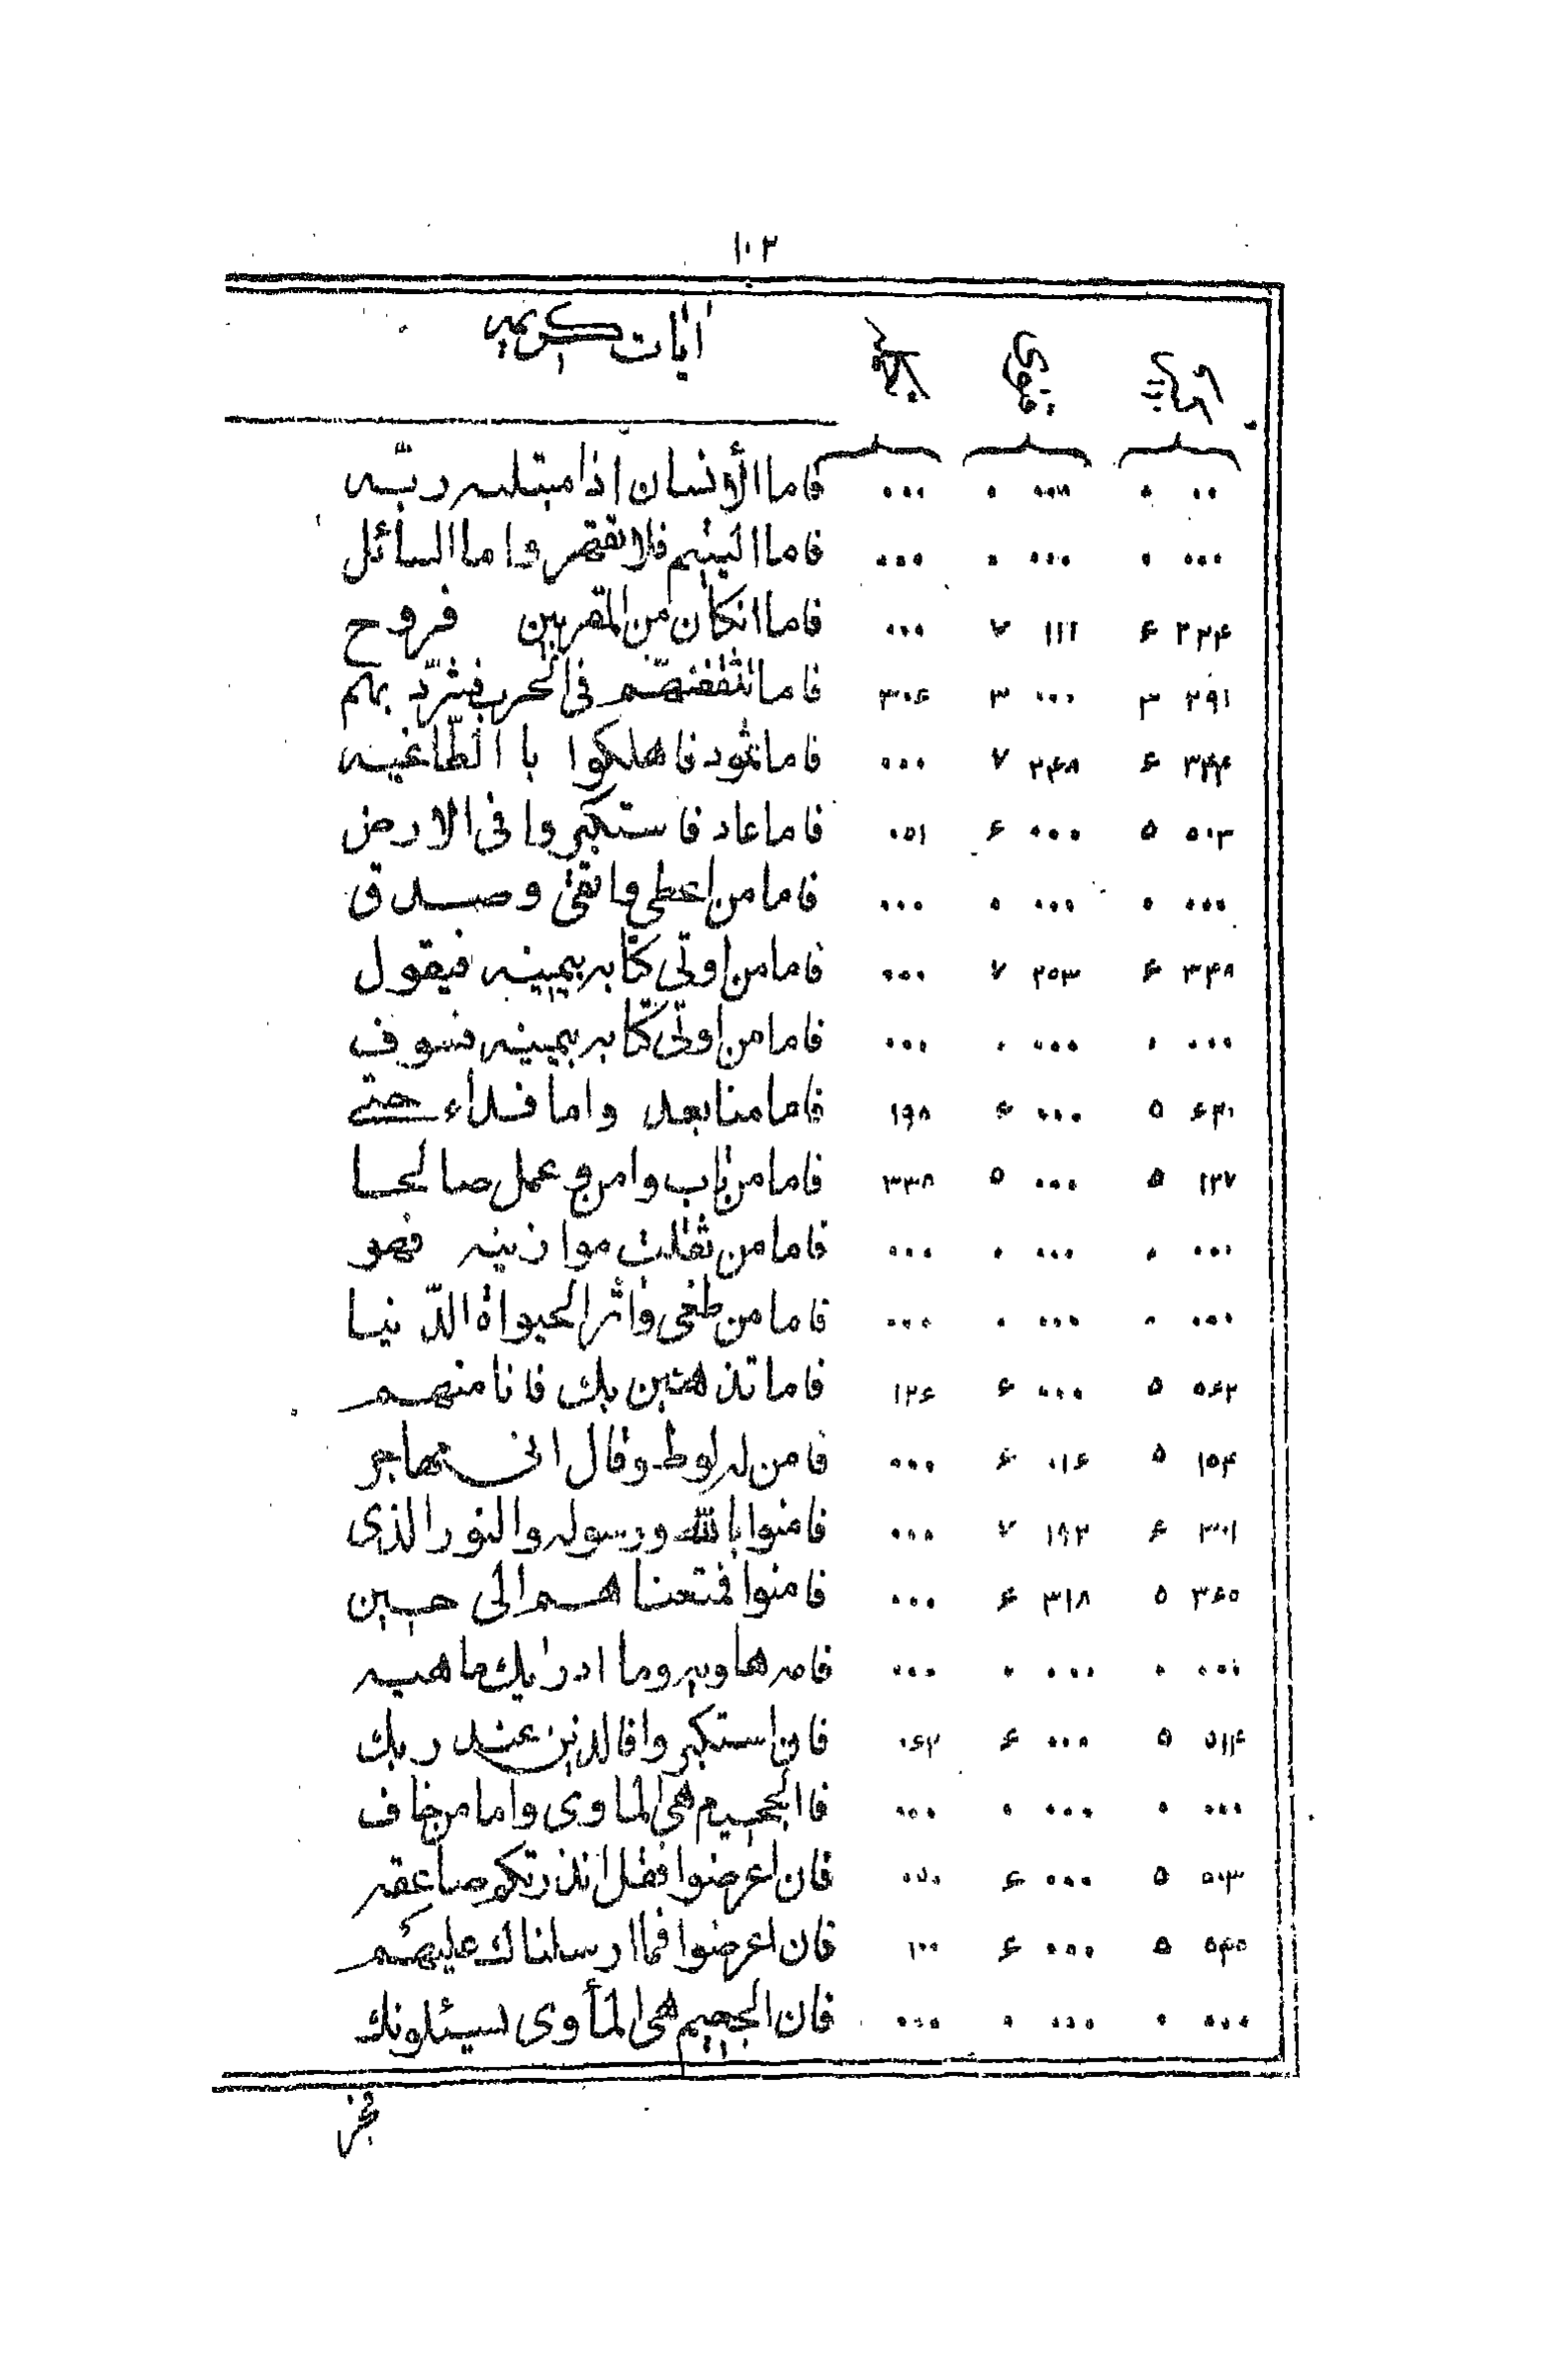 ١٠٢
اٰيات كريمه
٠٠ ٠ ٠٠٠ ٠ ٠٠٠ فاما الأنسان اذا مبتليه ربّه
٠٠٠ ٠ ٠٠٠ ٠ ٠٠٠ فاما اليتيم فلا تقهر واما السائل
٢٣۴ ۶ ١١٢ ٧ ٠٠٠ فاما انكان من المقربين فروح
٢٩١ ٣ ٠٠٠ ٣ ٣٠۶ فاما تثقفنهّم فى الحرب فشرّد بهم
٣۴۴ ۶ ٢۴٨ ٧ ٠٠٠ فاما ثمود فاهلكوا با الطّاغيه
٥٠٣ ٥ ٠٠٠ ۶ ٠٥١ فاما عاد فاستكبروا فى الارض
٠٠٠ ٠ ٠٠٠ ٠ ٠٠٠ فاما من اعطى واتقى وصدق
٣۴٨ ۶ ٢٥٣ ٧ ٠٠٠ فاما من اوتى كتابه بيمينه فيقول
٠٠٠ ٠ ٠٠٠ ٠ ٠٠٠ فاما من اوتى كتابه بيمينه فسوف
۶٣١ ٥ ٠٠٠ ۶ ١٩٨ فاما منا بعد واما فداء حتى
١٢٧ ٥ ٠٠٠ ٥ ٣٣٨ فاما من تاب وامن و عمل صالحا
٠٠٠ ٠ ٠٠٠ ٠ ٠٠٠ فاما من ثقلت موازينه فهو
٠٠٠ ٠ ٠٠٠ ٠ ٠٠٠ فاما من طغى واثر الحيواة الدّنيا
٥۶٢ ٥ ٠٠٠ ۶ ١٢۶ فاما تذهبن بك فانا منهم
١٥۴ ٥ ٠١۶ ۶ ٠٠٠ فامن له لوط وقال انى مهاجر
٣٠١ ۶ ١٩٢ ٧ ٠٠٠ فامنوا بالله ورسوله والنور الذى
٣۶٥ ٥ ٣١٨ ۶ ٠٠٠ فامنوا فمتعناهم الى حين
٠٠٠ ٠ ٠٠٠ ٠ ٠٠٠ فامه هاويه وما ادرايك ماهيه
٥١۴ ٥ ٠٠٠ ۶ ٠۶٢ فان استكبروا فالذين عند ربك
٠٠٠ ٠ ٠٠٠ ٠ ٠٠٠ فا الجحيم هى الماوى واما من خاف
٥٠٣ ٥ ٠٠٠ ۶ فان اعرضوا فقل انذرتكم صاعقه
٥۴٥ ٥ ٠٠٠ ۶ ١٠٠ فان اعرضوا فما ارسلناك عليهم
٠٠٠ ٠ ٠٠٠ ٠ ٠٠٠ فان الجحيم هى المأوى يسئلونك